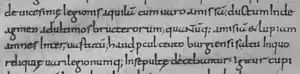 deuicesime legionis aquilam cum uaro amissam; ductum inde
agmen ad ultimos bructerorum, quantumq; amisiam & lupiam
amnes inter, uastatum; haud procul teuto burgensi saltu in quo
reliquiae uari legionumq; insepultae dicebantur Igitur cupi